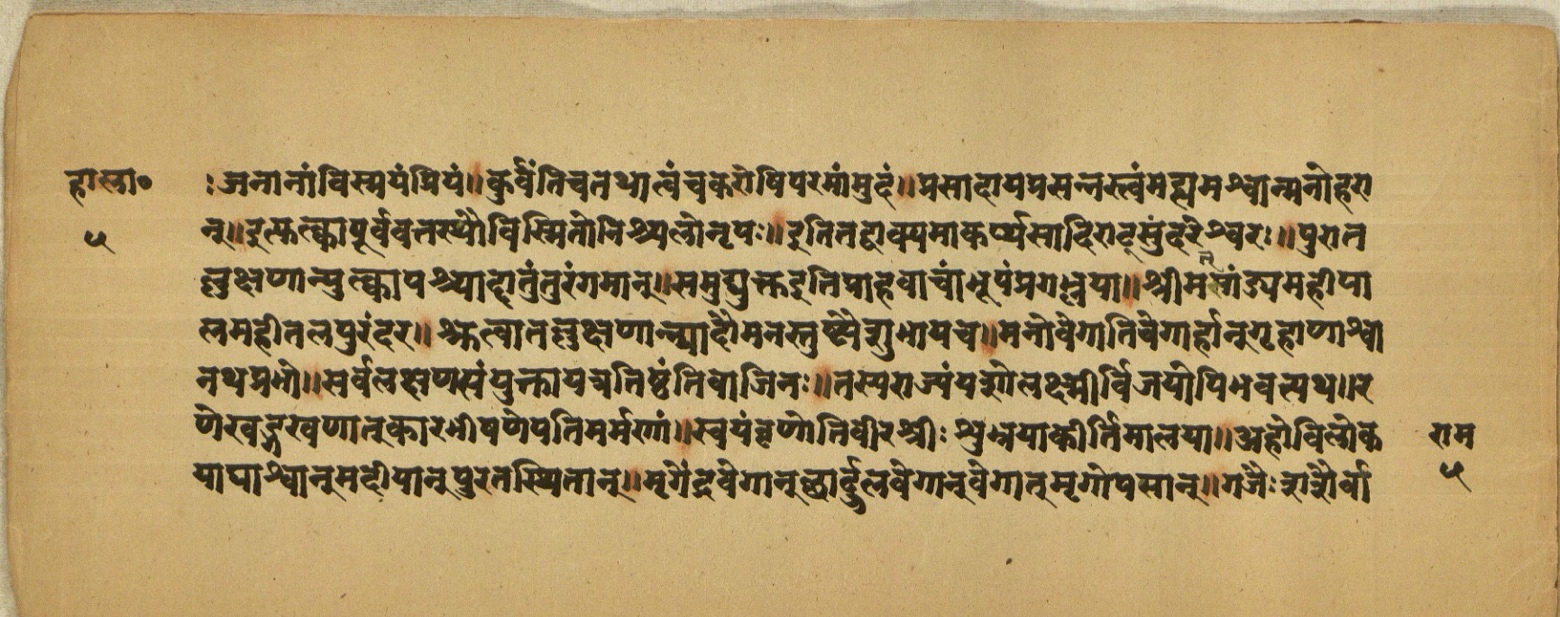 हास्ला० : जनानांविस्मयंप्रियं॥कुर्वंतिचतथात्वंचकरोषिपरमांमुदं॥प्रसादायप्रसन्नस्त्वंमह्यमश्वान्मनोहरा
५ न्॥इत्युक्त्वापूर्ववतस्थौविस्मितोनिश्चलोनृपः॥इतितद्वाक्यमाकर्ण्यसादिराट्सुंदरेश्वरः॥पुरात
ल्लक्षणान्युक्त्वापश्चाद्दातुंतुरंगमान्॥समुद्युक्तइतिप्राहवाचांभूपंप्रगल्भया॥श्रीमन्पांड्यमहीपा
लमहीतलपुरंदर॥श्रुत्वातल्लक्षणान्यादौमनस्तुष्ट्यैशुभायच॥मनोवेगातिवेगार्हान्गृहाणाश्वा
नथप्रभो॥सर्वलक्षणसंयुक्तायत्रतिष्ठंतिवाजिनः॥तस्यराज्यंयशोलक्ष्मीर्विजयोपिभवत्यथ॥र
णेखड्गखणात्कारभीषणेपतिमर्मणां॥स्वयंवृणोतिवीरश्रीःशुभ्रयाकीर्तिमालया॥अहोविलोक
याघाश्वान्मदीयान्पुरतस्थितान्॥मृगेंद्रवेगान्छार्दूलवेगान्वेगात्मृगोपमान्॥गजैःशूरैर्वा
राम
५